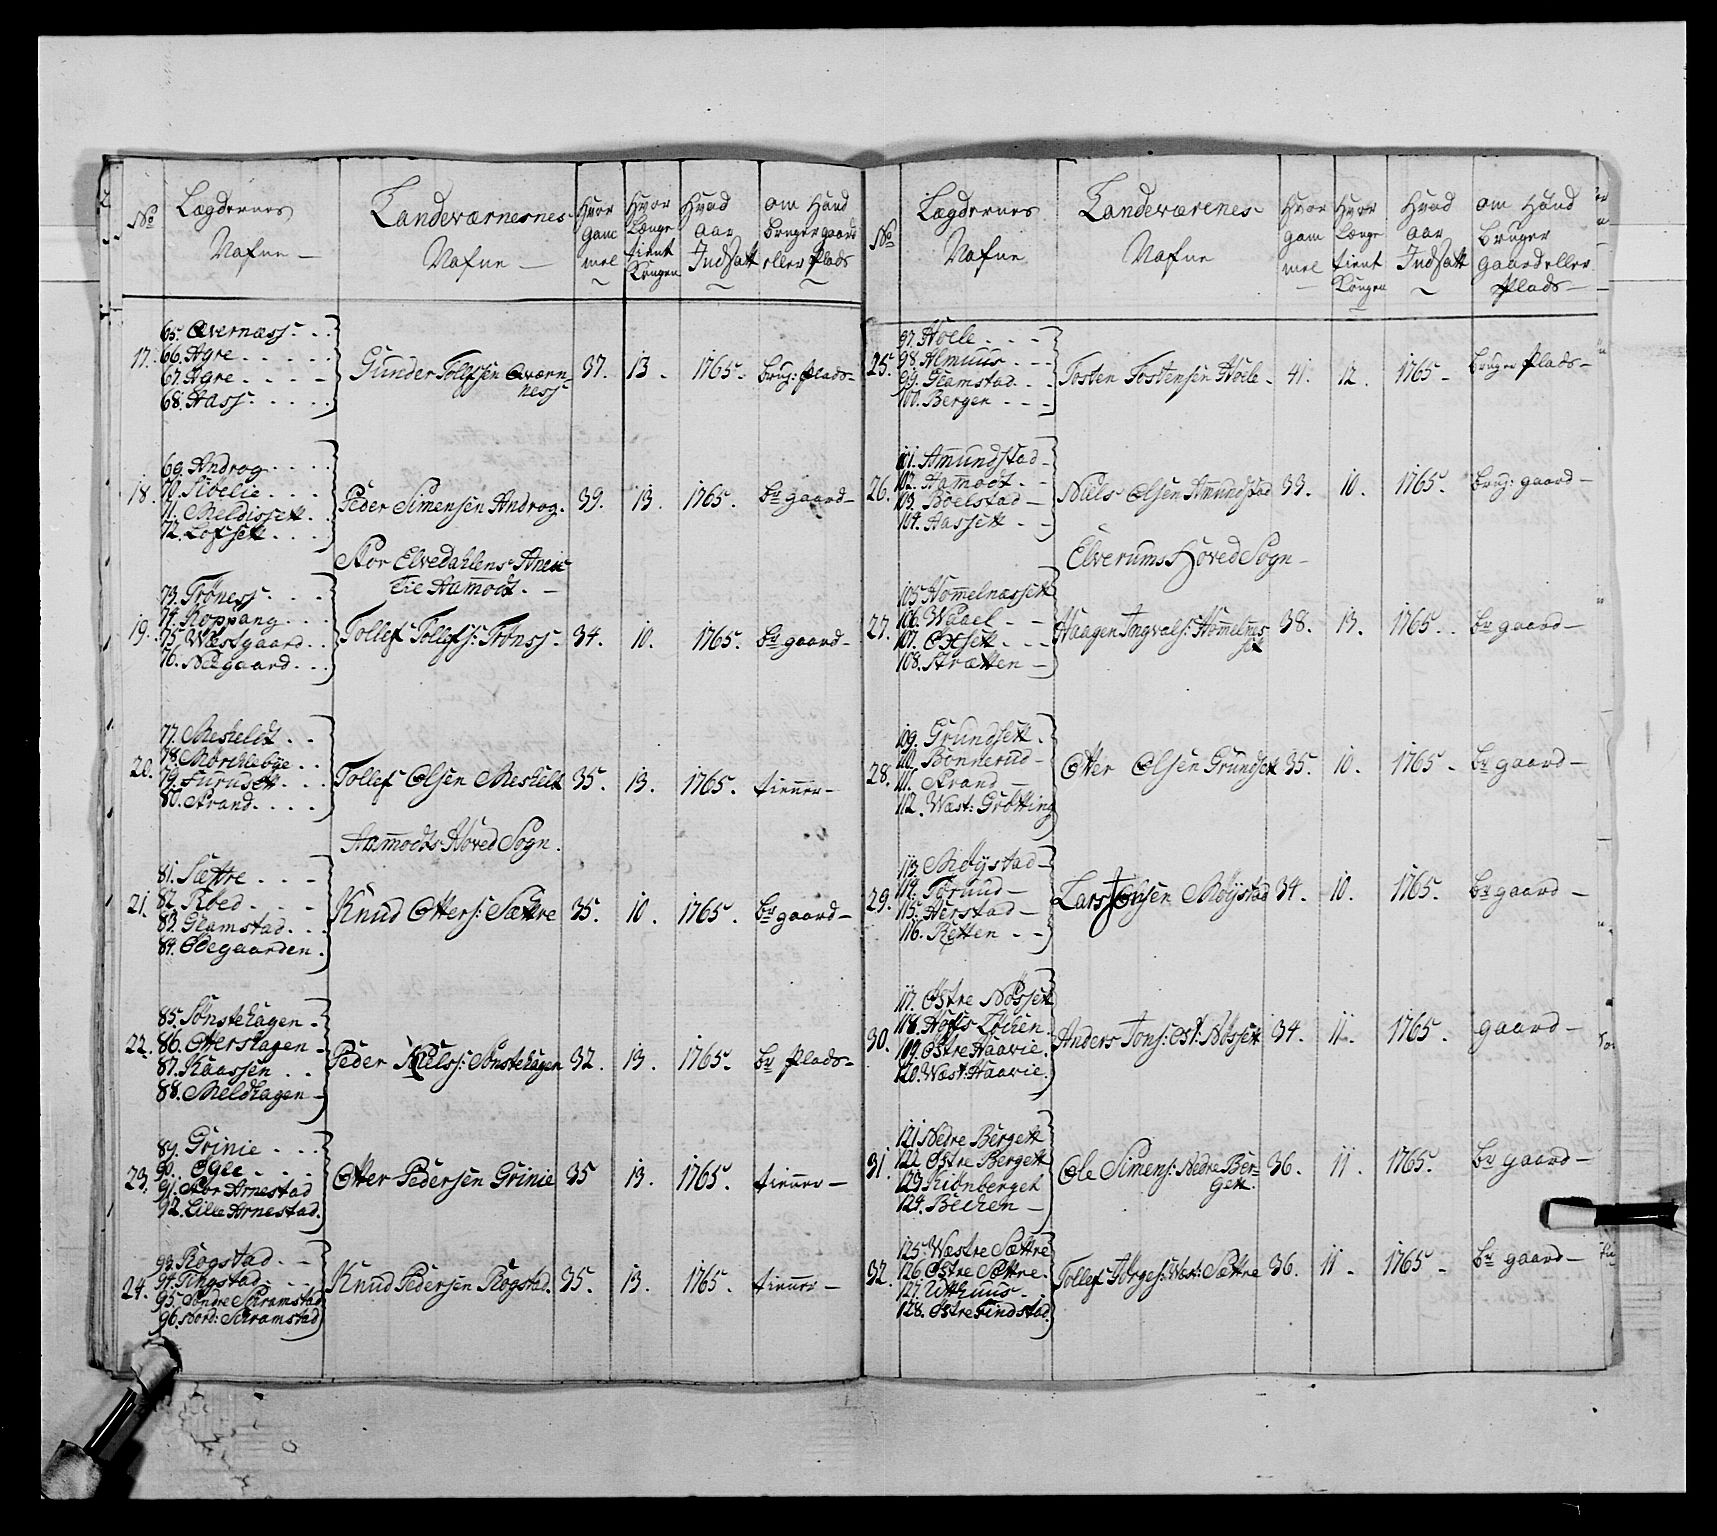 No Lægdernes Nafne — Landeværnesnes Nafne — Hvor gam mel Hvor Længe tient Kongen Hvad aar Indsatt om Hand bruger gaard eller Plads
65. Overnæss
17. 66. Agre
67. Agre
68. Aass
Gunder Tollefsen Overn ness 37. 13. 1765. brug: Plads
69. Androg
18. 70.
71. Meldissett
72. Löfsett
Peder Simensen Androg. 39. 13. 1765. br gaard
Stor Elvedahlens Anex
Til Aamodt.
73. Tröness
74. Koppang
19. 75. Wæstgaard
76. Neegaard
Tollef Tollefs: Trönss. 34. 10. 1765. br gaard
77. Meskeldt
78.
20. 79. Furusett
80. Strand
Tollef Olsen Meskelt 35. 13. 1765. tienner
Aamodts Hoved Sogn.
81. Sættre
21. 82.
83. Glamstad
84. Ödegaarden
Knud Otters: Sættre 35. 10. 1765. br gaard
85. Sönstehagen
22. 86. Otterstagen
87. Kaassen
88. Meldhagen
Peder Niels: Sönstehagen 32. 13. 1765. br Plads
89. Grinie
90.
23. 91. Stor Arnestad
92. Lille Arnestad.
Otter Pedersen Grinie 35 13. 1765. tienner
93. Rogstad
94. Ringstad
24. 95. Söndre Skramstad
96. Nord: Skramstad
Knud Pedersen Rogstad. 35. 13. 1765. tienner
No Lægdernes Nafne Landeværenes Nafne Hvor gam mel Hvor Længe tient Kongen Hvad aar Indsatt om Hand bruger gaard eller Plads
97. Hoele
25. 98. Almuus
99. Glamstad
100. Bergen
Tosten Tostensen Hoele. 41. 12. 1765. bruger Plads
101. Amundstad
26. 102. Aamodt
103. Boelstad
104. Aassett
Niels Olsen Amundstad 33. 10. 1765. brug: gaard
Elverums Hoved Sogn
105. Hommelnæssett
106. Waael
27. 107. Oxsett
108. Strætten
Haagen Ingvals: Hommelnes sett 38. 13. 1765. br gaard
109. Grundsett.
110. Bonnerud
28. 111. Strand
112. Wæst: Grötting
Otter Olsen Grundsett 35. 10. 1765. br gaard
113. Möÿstad
114.
29. 115. Herstad
116. Retten
Lars Olsen Möÿstad 34. 10. 1765. br gaard
117. Östre Nössett
118. Hoffs Löchen.
30. 119. Östre Haavie.
120. Wæst: Haavie.
Anders Jons: Ost: Nössett 34. 11. 1765. gaard
121 Nedre Bergett
31. 122 Östre Bergett
123 Kiönberget
124. Becken
Ole Simens: Nedre Ber= gett. 36. 11. 1765. br gaard
125. Wæstre Sættre
32. 126. Östre Sættre.
127. Utthuus
128. Östre Findstad.
Tollef Törges: Wæst: Sættre 36. 11. 1765. br gaard